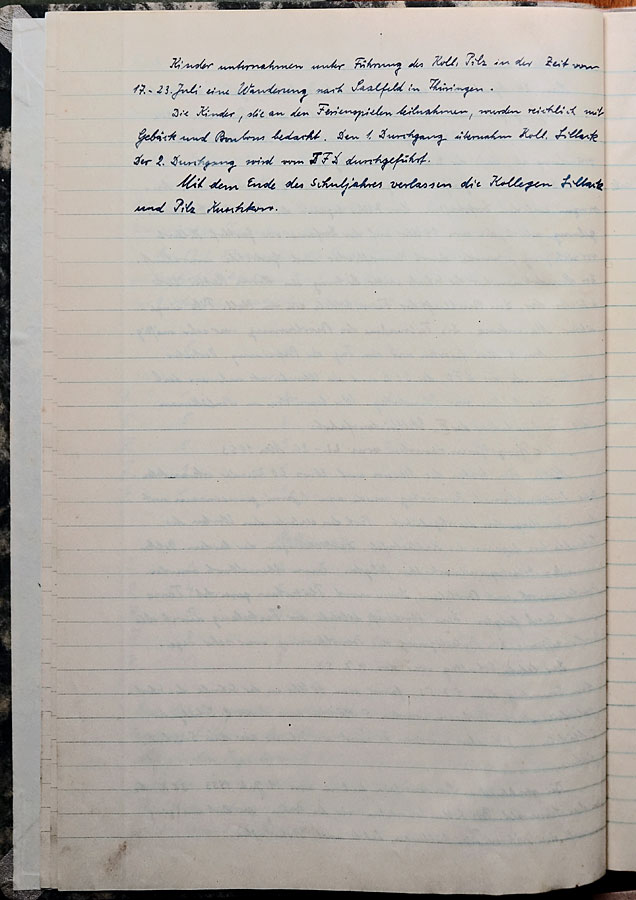 Kinder unternahmen unter Führung des Koll. Pilz in der Zeit vom
17.-23. Juli eine Wanderung nach Saalfeld in Thüringen.
Die Kinder, die an den Ferienspielen teilnahmen, wurden reichlich mit
Gebäck und Bonbons bedacht. Den 1. Durchgang übernahm Koll.
Der 2. Durchgang wird vom DFD durchgeführt.
Mit dem Ende des Schuljahres verlassen die Kollegen
und Pilz